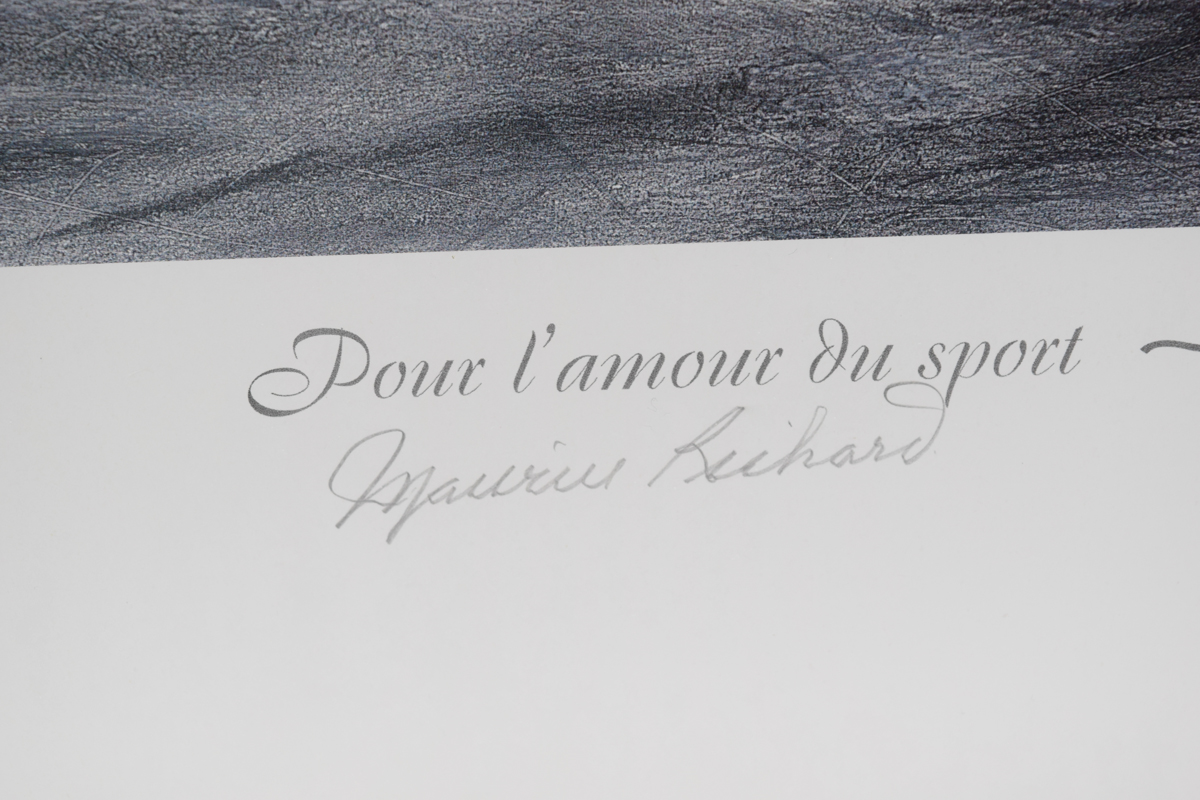 Pour l'amour du sport ~
Maurice Richard